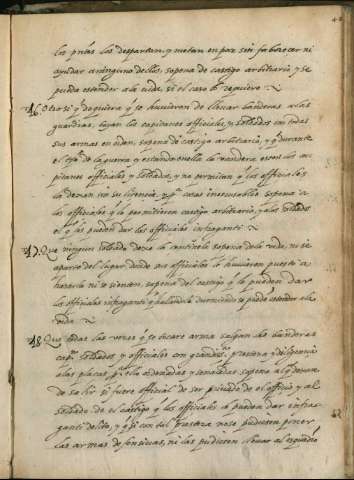 los pntes los despartan, y metan en paz sin fauorecer ni
ayudar a ninguno dellos, sopena de castigo arbitrario y se
pueda estender a la vida si el caso lo requiere.
46. Otrosi y doquiera q̃ se huuieren de lleuar banderas a las
guardias, vayan los capitanes officiales, y soldados con todas
sus armas en orden, sopena de castigo arbitrario, y q̃ durante
el de la guerra y estando en ella la vandera, esten los ca
pitanes officiales y soldados, y no permitan q̃ los officiales
la dexen sin su licencia, y q̃ sean inescusable sopena a
los officiales q̃ lo permitieren castigo arbitrario, y a los soldados
el q̃ les pueden dar los officiales infraganti
47. Que ningun soldado dexe la centinela sopena de la vida, ni se
aparte del lugar donde sus officiales lo huuieren puesto a
hazerla ni se sienten, sopena del castigo q̃ le pueden dar
los officiales infraganti y hallandole durmiendo se pueda estender a la
vida
48. Que todas las vezes q̃ se tocare arma salgan las banderas
capes soldados y officiales con grandes. presteza y diligencia
a las plazas pa ello ordenadas y conocidas sopena al q̃ dexare
de salir si fuere official de ser priuado de el officio, y al
soldado de el castigo q̃ los officiales le pueden dar infra
ganti delito, y q̃ si con tal presteza no se pudieren poner
las armas defensiuas, ni las pudieren lleuar al esquadrõ